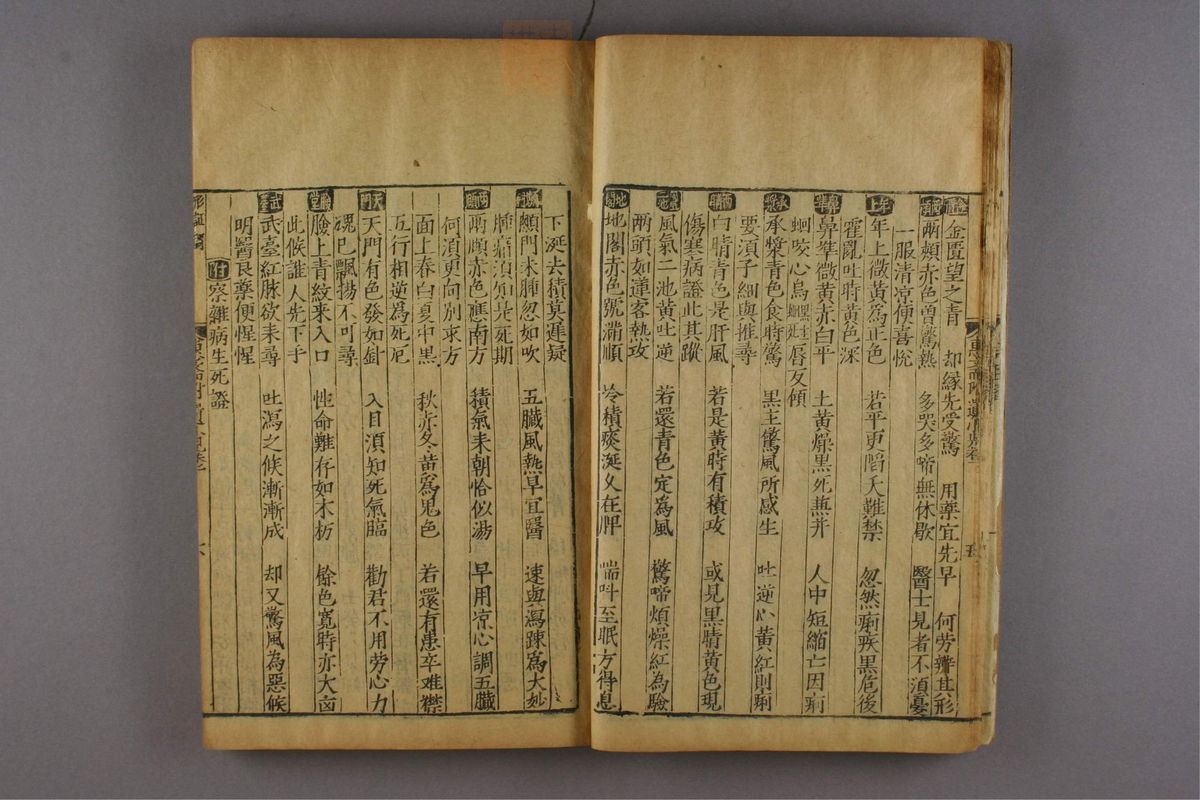 金匱望之青 却縁先受驚 用藥宜先早 何勞辨其形
兩頰赤色曽驚熱 多哭多啼無休歇 醫士見者不須憂
一服清凉便喜悅
年上
年上微黄為正色 若平更陷夭難禁 忽然痢疾黒危後
霍亂吐時黄色深
鼻準
鼻準微黄赤白平 土黄燥黒死無并 人中短縮亡因痢
蛔咬心烏唇反傾
承漿
承漿青色食時驚 黒主驚風所感生 吐逆心黄紅則痢
要須子細與推尋
兩睛
白睛青色是肝風 若是黄時有積攻 或見黒睛黄色現
傷寒病證此其蹤
風氣二池黄吐逆 若還青色定為風 驚啼煩燥紅為驗
兩頭如蓮客熱攻
地閣
地閣赤色號滿順 冷積痰涎又在脾 喘呌至眠方得息
下涎去積莫遲疑
顖門未腫忽如吹 五臟風熱早宜醫 速與瀉疎為大妙
腫痛須知是死期
兩顴
兩顴赤色應南方 積氣来朝恰似湯 早用凉心調五臟
何須更向别求方
面上春白夏中黒 秋赤冬黄為鬼色 若還有患卒难禁
五行相逆為死厄
天門
天門有色發如針 入目須知死氣臨 勸君不用勞心力
魂已飄揚不可尋
臉堂
臉上青紋来入口 性命難存如木朽 餘色寛時亦大凶
此候誰人先下手
武臺
武臺紅脉欲来尋 吐瀉之候漸漸成 却又驚風為惡候
明醫良藥便惺惺
附 察雜病生死證